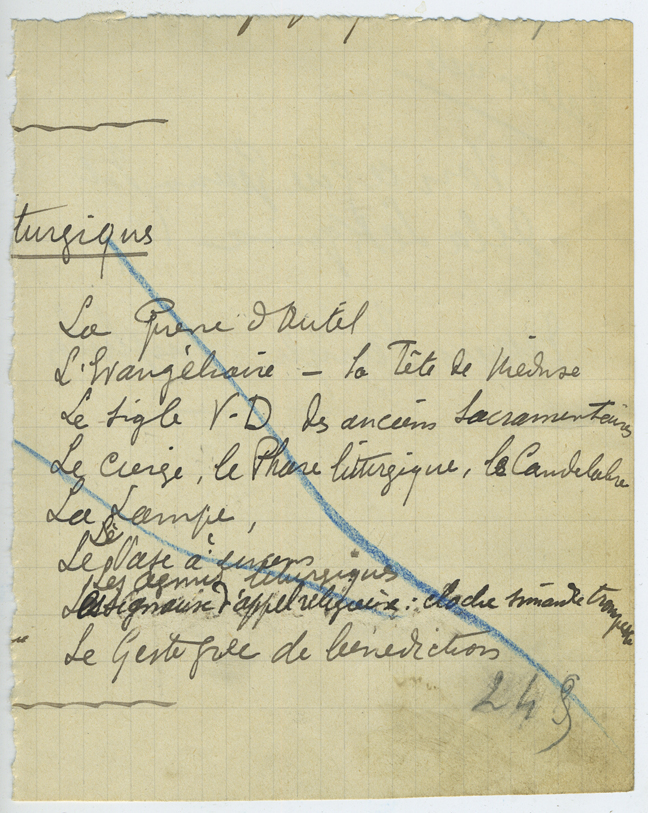 turgiqus
La Pierre d'Autel
L'Evangéliaire – la Tête de Méduse
Le sigle V-D des anciens Sacramentaires
Le cierge, le Phare liturgique, le Candelabre
La Lampe,
Le Vase à encens
Les agnus liturgiques
Les signaux d'appel religieux : cloche simandre trompe
Le Geste grec de bénediction
24